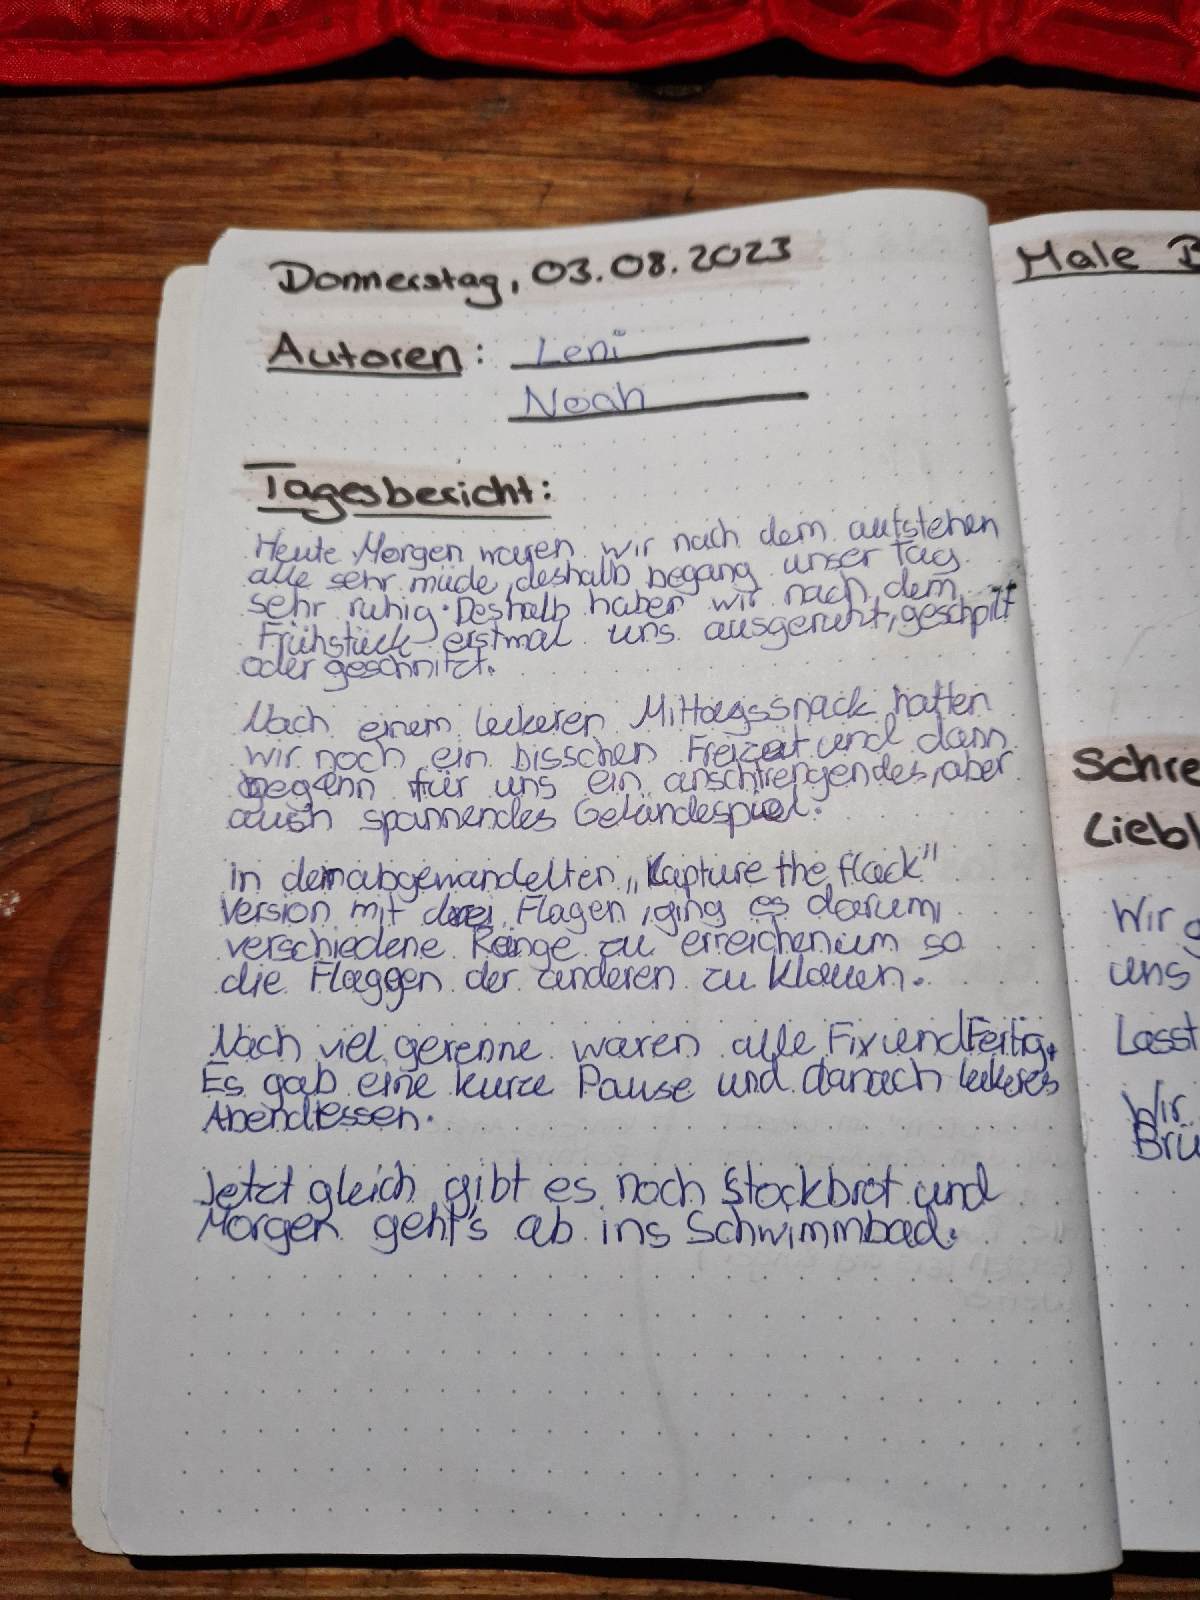 Donnerstag, 03.08.2023
Autoren: Leni
Noah
Tagesbericht:
Heute Morgen waren wir nach dem aufstehen
alle sehr müde, deshalb begang unser Tag
sehr ruhig. Deshalb haben wir nach dem
Frühstück erstmal uns ausgeruht, geschpilt
oder geschnitzt.
Nach einem leckeren Mittagssnack hatten
wir noch ein bisschen Freizeit und dann
begann für uns ein anschtrengendes, aber
auch spannendes Geländespiel.
In dem abgewandelten „Kapture the flack"
Version mit drei Flagen, ging es darum
verschiedene Ränge zu erreichen um so
die Flaggen der anderen zu klauen.
Nach viel gerenne waren alle Fix und Fertig.
Es gab eine kurze Pause und danach leckeres
Abendessen.
Jetzt gleich gibt es noch Stockbrot und
Morgen geht's ab ins Schwimmbad.
Male B
Schre
Liebl
Wir g
uns
Lasst
Wir
Brü